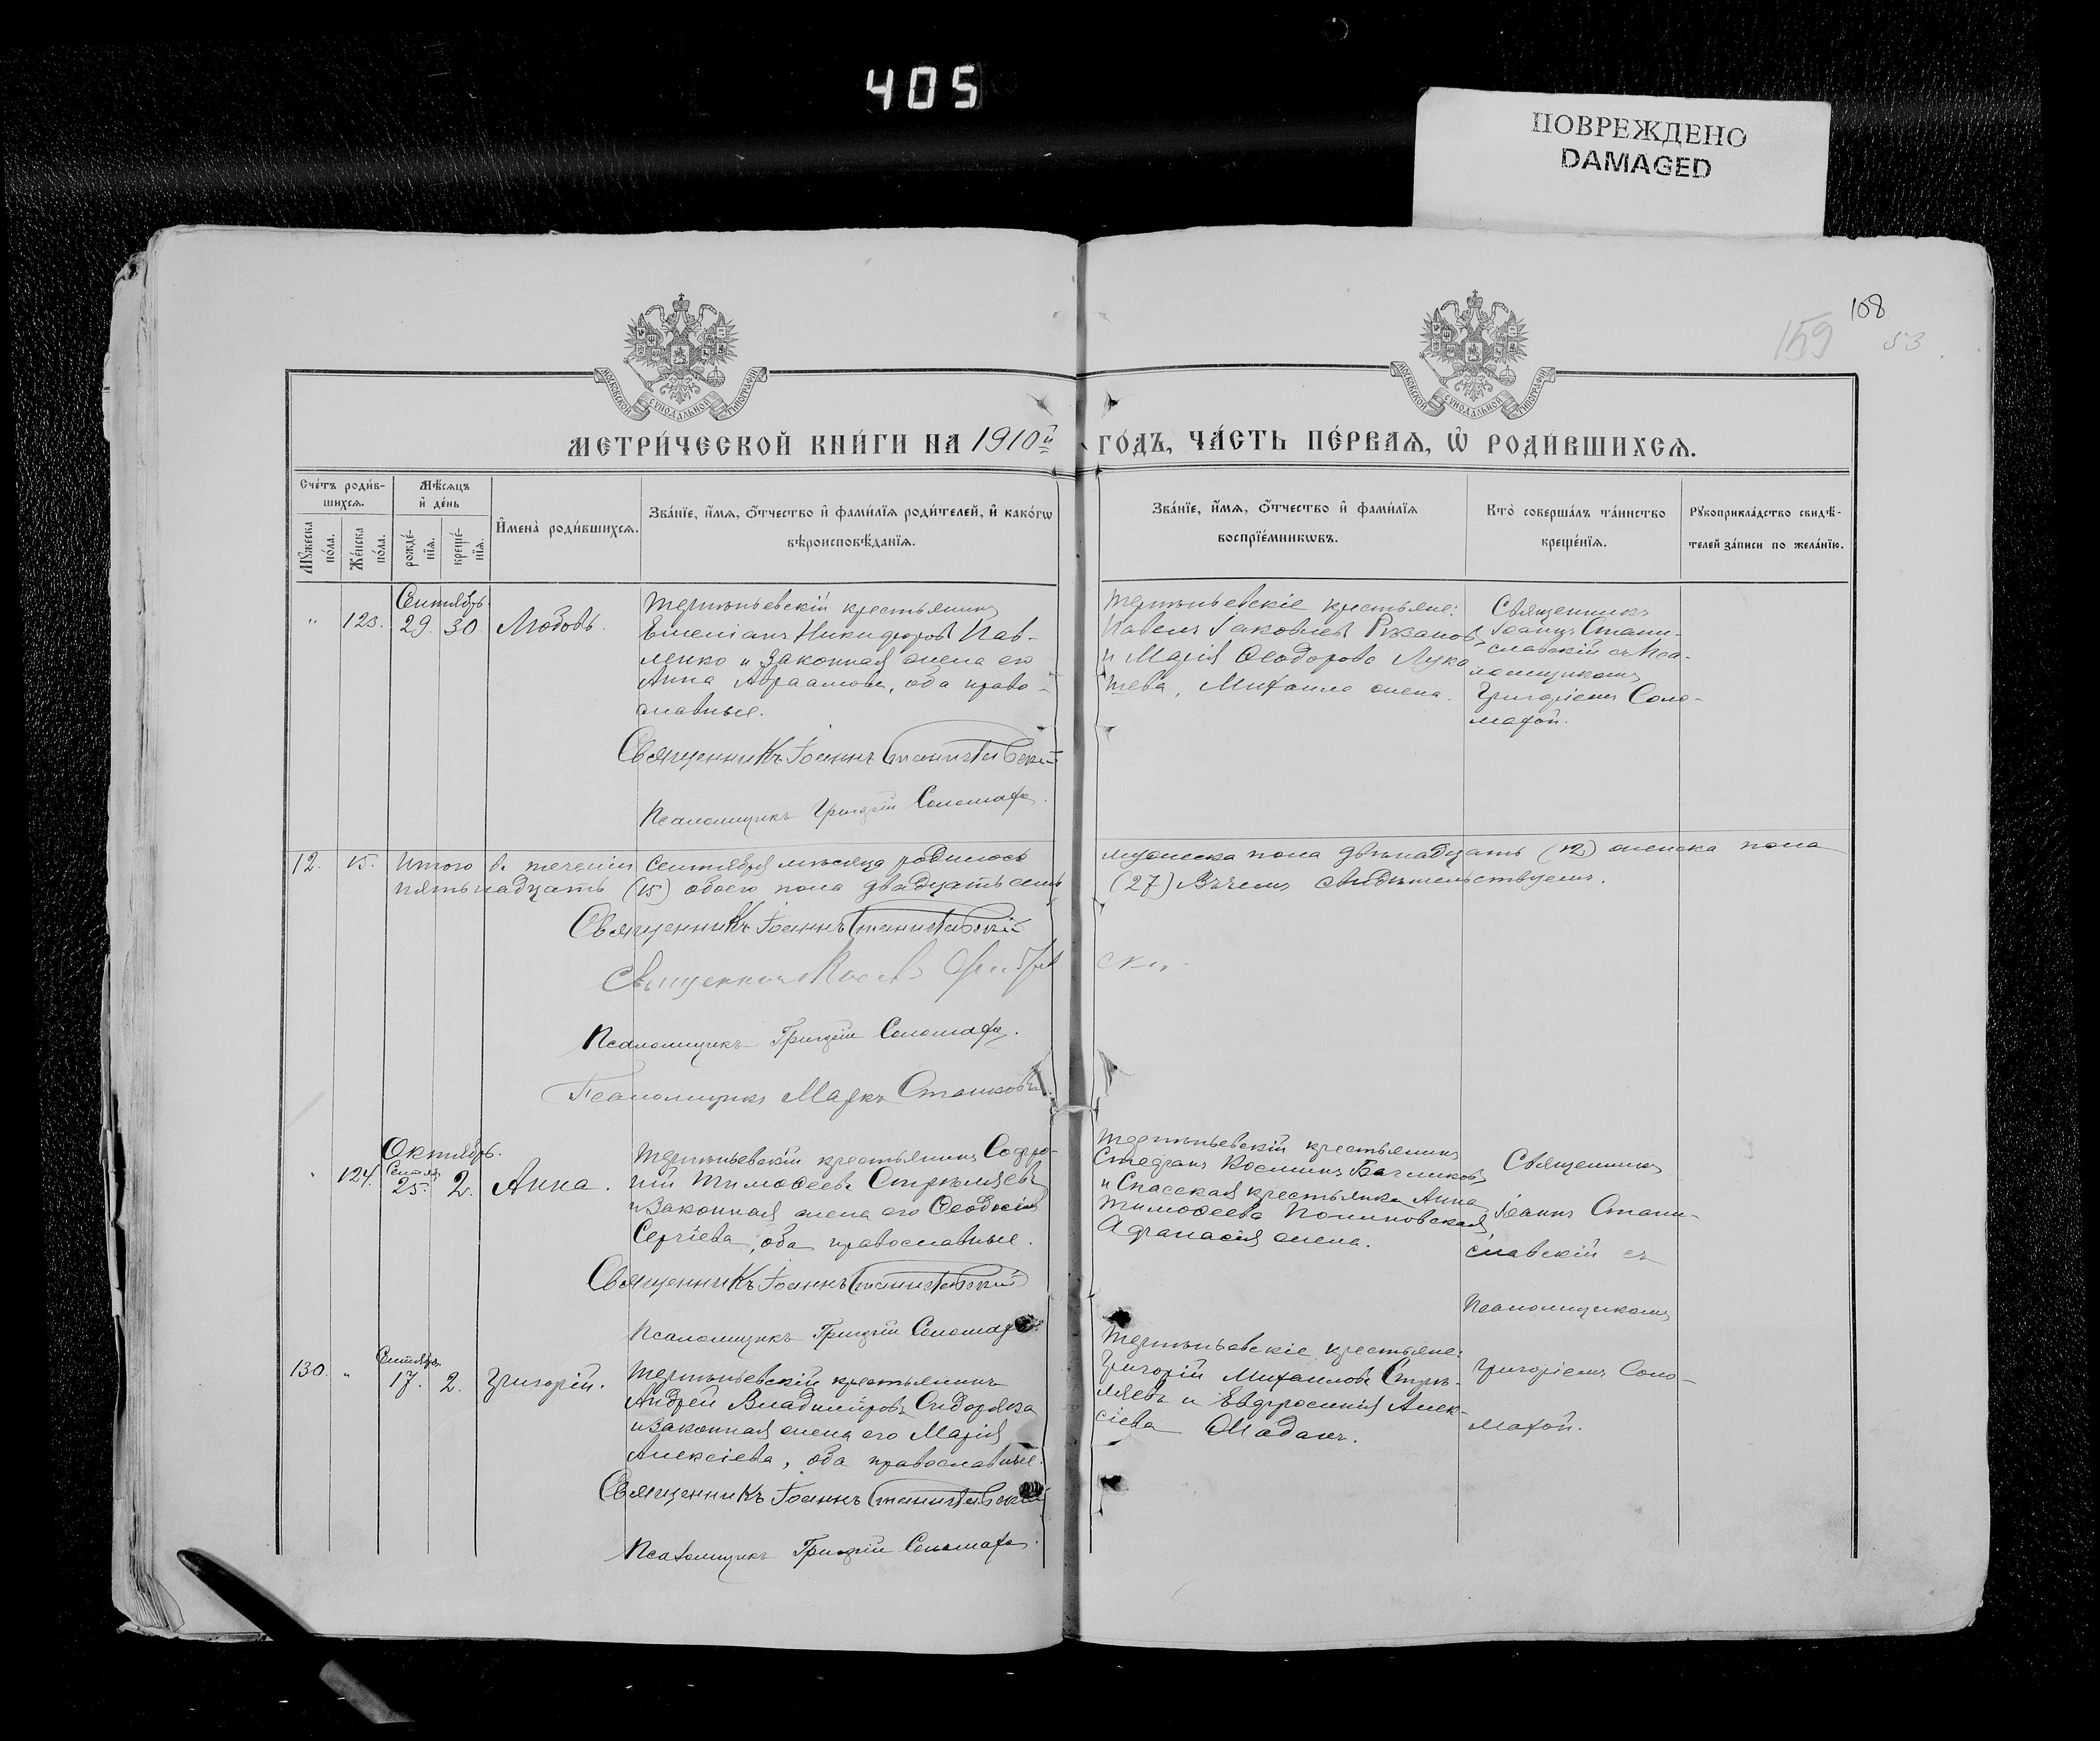 405
ПОВРЕЖДЕНО
DAMAGED
108
159
53
МОСКОВСКОЙ СѴНОДАЛЬНОЙ ТИПОГРАФІИ
МОСКОВСКОЙ СѴНОДАЛЬНОЙ ТИПОГРАФІИ
МЕТРИ́ЧЕСКОЙ КНИ́ГИ НА 1910й ГО́ДЪ, ЧА́СТЬ ПЕ́РВАѦ, Ѿ РОДИ́ВШИХСѦ.
Сче́тъ роди́в-
шихсѧ.
Мꙋ́жеска по́ла.
Же́нска по́ла.
Мѣ́сѧцъ
и҆ де́нь
рожде́-
нїѧ.
креще́-
нїѧ.
И҆мена̀ роди́вшихсѧ.
Зва́нїе, и҆́мѧ, ѻ҆́тчество и҆ фами́лїѧ роди́телей, и҆ како́гѡ
вѣроисповѣ́данїѧ.
Зва́нїе, и҆́мѧ, ѻ҆́тчество и҆ фами́лїѧ
воспрїе́мникѡвъ.
Кто̀ соверша́лъ та́инство
креще́нїѧ.
Рꙋкоприкла́дство свидѣ́-
телей за́писи по жела́нїю.
Сентябрь.
" 123. 29. 30 Любовь.
Терпѣньевскій крестьянинъ
Емеліанъ Никифоровъ Пав-
ленко и законная жена его
Анна Авраамова, оба право-
славные.
Священникъ Іоаннъ Станиславскій
Псаломщикъ Григорій Соломаха.
Терпѣньевскіе крестьяне:
Павелъ Іаковлевъ Рязановъ
и Марія Ѳеодорова Лука-
шева, Михаила жена.
Священникъ
Іоаннъ Стани-
славскій съ Пса-
ломщикомъ
Григоріемъ Соло-
махой.
12. 15. Итого въ теченіи Сентября мѣсяца родилось мужеска пола двѣнадцать (12) женска пола
пятьнадцать (15) обоего пола двадцать семь (27) Въ чемъ свидѣтельствуемъ.
Священникъ Іоаннъ Станиславскій
Священникъ
Псаломщикъ Григорій Соломаха.
Псаломщикъ Маркъ Сташковъ.
Октябрь.
" 124. Сентяб. 25. 2. Анна.
Терпѣньевскій крестьянинъ Софро-
ній Тимоѳеевъ Стрѣляевъ
и законная жена его Ѳеодосія
Сергіева, оба православные.
Священникъ Іоаннъ Станиславскій
Псаломщикъ Григорій Соломаха.
Терпѣньевскій крестьянинъ
Стефанъ Космынъ Бачликовъ
и Спасская крестьянка Анна
Тимоѳеева Полиновская,
Аѳанасія жена.
Священникъ
Іоаннъ Стани-
славскій съ
Псаломщикомъ
Григоріемъ Соло-
махой.
130. " Сентябрь 17. 2. Григорій.
Терпѣньевскій крестьянинъ
Андрей Владиміровъ Сидоряка
и законная жена его Марія
Алексіева, оба православные.
Священникъ Іоаннъ Станиславскій
Псаломщикъ Григорій Соломаха.
Терпѣньевскіе крестьяне:
Григорій Михаиловъ Стрѣ-
ляевъ и Евфросинія Алек-
сіева Шаданъ.